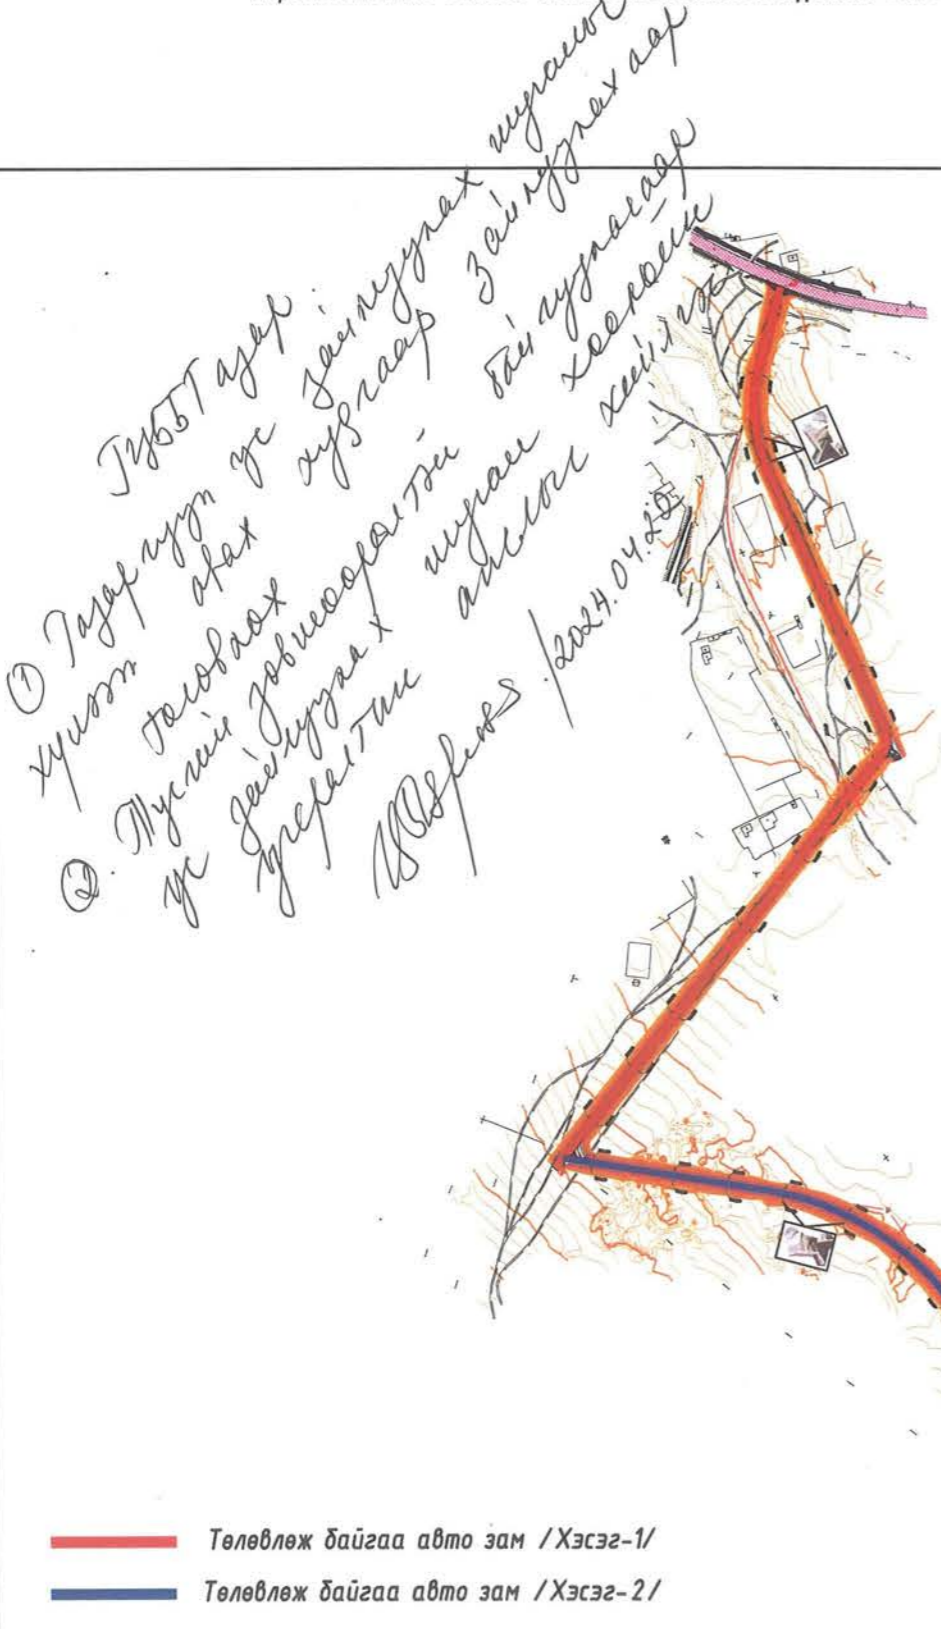 ГУББТ газар
① Газар шүүн ус зайлуулах шугамыг
хүлээн авах худгаар зайлуулахаар
төлөвлөх
②. Тусгай зөвшөөрөлтэй байгууллагаар
ус зайлуулах шугам хоолойн
угсралтын ажлыг хийлгэх
/2024.04.20
Төлөвлөж байгаа авто зам /Хэсэг-1/
Төлөвлөж байгаа авто зам /Хэсэг-2/